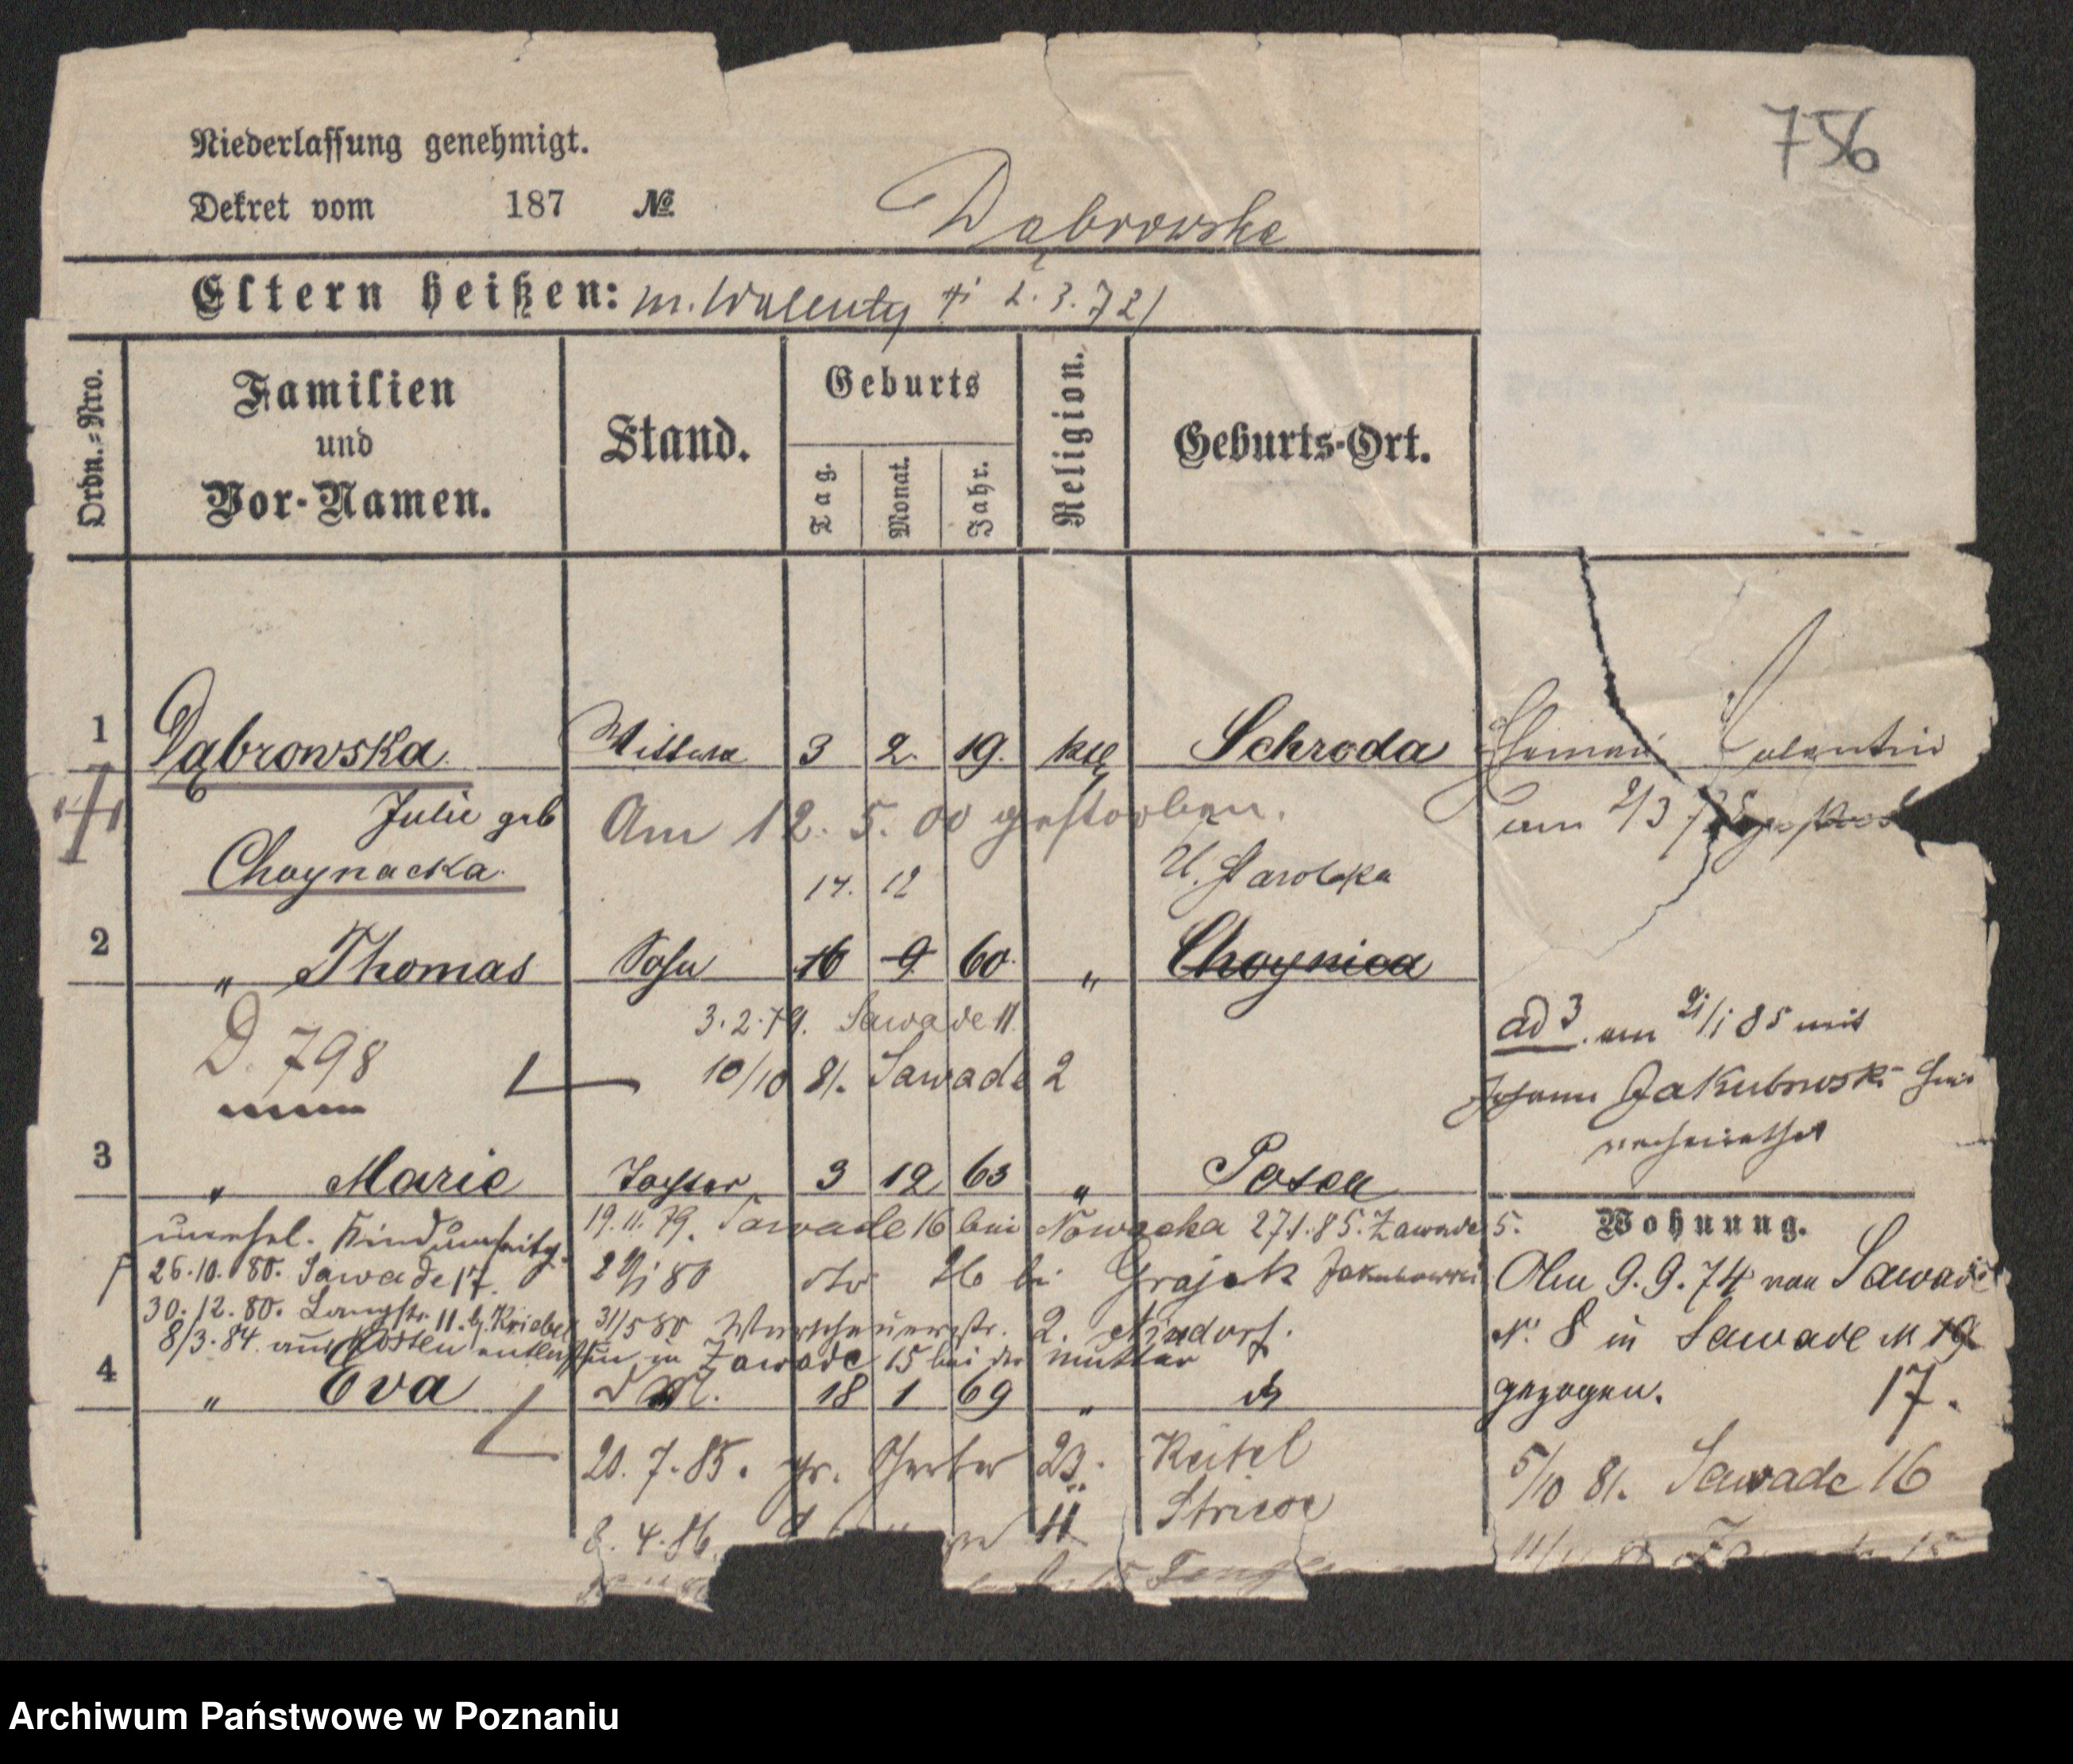 756
Niederlassung genehmigt.
Dekret vom 187 №
Dąbrowska
Eltern heißen: m. Walenty † 2.3.72)
Ordn.-Nro.
Familien und Vor-Namen.
Stand.
Geburts
Tag. Monat. Jahr.
Religion.
Geburts-Ort.
1 Dąbrowska Wittwe 3 2. 19. kth Schroda
Ehemann Valentin
am 2/3 72
Julie geb
Am 12. 5. 00 gestorben.
Choynacka.
14. 12
2 " Thomas Sohn 16 9 60. " Choynica
3.2.79. Sawade 11.
D. 798
10/10 81. Sawade 2
ad 3. am 21/1 85 mit
Johann Jakubowski hier
verheirathet
3 " Marie Tochter 3 12 63 " Posen
unehel. Kind
19.11.79. Sawade 16 bei Nowacka 27.1.85. Zawade 5.
26.10.80. Sawade 17.
30.12.80. Langstr. 11. b. Kriebel
8/3.84. aus Kosten entlassen in Zawade 15 bei der Mutter
bei Grajek Jakubowski
31/5 80
2.
4 " Eva 18 1 69 "
20.7.85. gr. Gerber 23. Keitel
8.4.86. 11 Striese
Wohnung.
Am 9.9.74 von Sawade
N. 8 in Sawade N 19
gezogen. 17.
5/10 81. Sawade 16
Archiwum Państwowe w Poznaniu